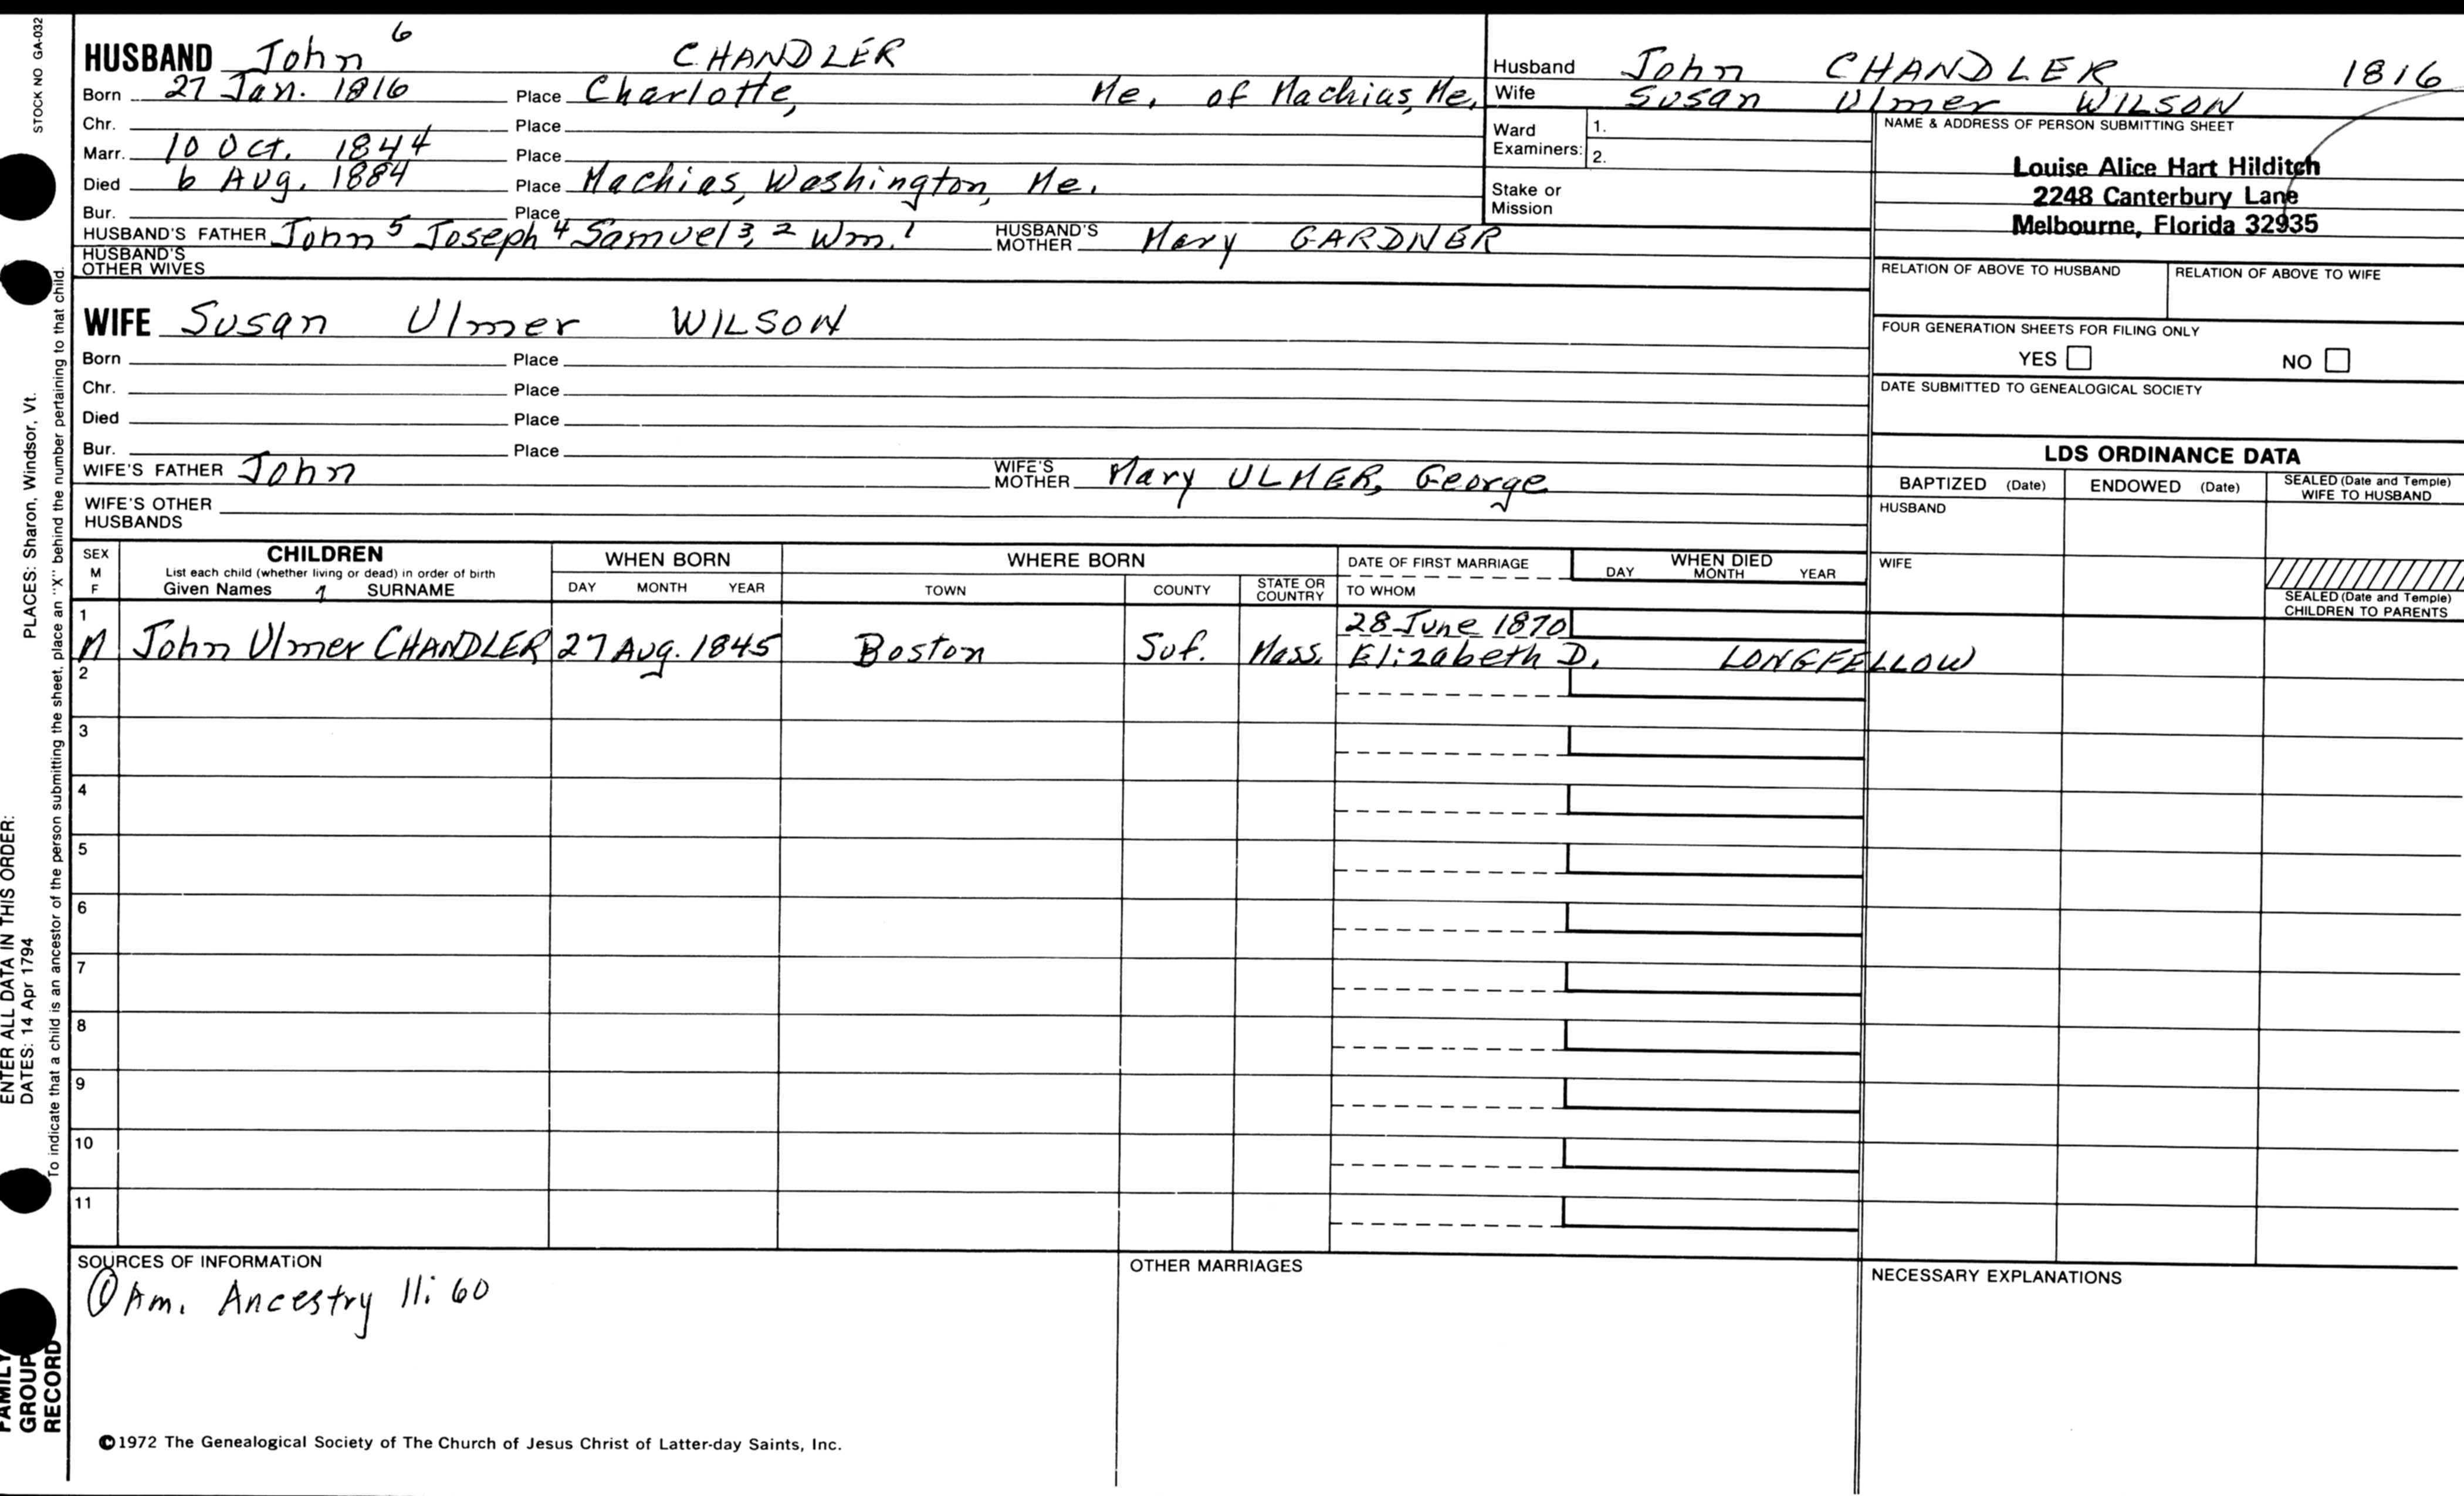 STOCK NO GA-032
HUSBAND John 6 CHANDLER
Born 27 Jan. 1816 Place Charlotte, Me. of Machias, Me.
Chr. Place
Marr. 10 Oct. 1844 Place
Died 6 Aug. 1884 Place Machias, Washington, Me.
Bur. Place
HUSBAND'S FATHER John 5 Joseph 4 Samuel 3, 2 Wm. 1 HUSBAND'S MOTHER Mary GARDNER
HUSBAND'S OTHER WIVES
WIFE Susan Ulmer WILSON
Born Place
Chr. Place
Died Place
Bur. Place
WIFE'S FATHER John WIFE'S MOTHER Mary ULMER, George
WIFE'S OTHER HUSBANDS
Husband John CHANDLER 1816
Wife Susan Ulmer WILSON
Ward Examiners: 1.
2.
Stake or Mission
NAME & ADDRESS OF PERSON SUBMITTING SHEET
Louise Alice Hart Hilditch
2248 Canterbury Lane
Melbourne, Florida 32935
RELATION OF ABOVE TO HUSBAND RELATION OF ABOVE TO WIFE
FOUR GENERATION SHEETS FOR FILING ONLY
YES NO
DATE SUBMITTED TO GENEALOGICAL SOCIETY
LDS ORDINANCE DATA
BAPTIZED (Date) ENDOWED (Date) SEALED (Date and Temple) WIFE TO HUSBAND
HUSBAND
WIFE
SEALED (Date and Temple) CHILDREN TO PARENTS
SEX M F
CHILDREN
List each child (whether living or dead) in order of birth
Given Names 7 SURNAME
WHEN BORN
DAY MONTH YEAR
WHERE BORN
TOWN COUNTY STATE OR COUNTRY
DATE OF FIRST MARRIAGE
TO WHOM
WHEN DIED
DAY MONTH YEAR
1 28 June 1870
M John Ulmer CHANDLER 27 Aug. 1845 Boston Suf. Mass. Elizabeth D. LONGFELLOW
2
3
4
5
6
7
8
9
10
11
SOURCES OF INFORMATION
① Am. Ancestry 11:60
OTHER MARRIAGES
NECESSARY EXPLANATIONS
©1972 The Genealogical Society of The Church of Jesus Christ of Latter-day Saints, Inc.
FAMILY GROUP RECORD
ENTER ALL DATA IN THIS ORDER:
DATES: 14 Apr 1794
PLACES: Sharon, Windsor, Vt.
To indicate that a child is an ancestor of the person submitting the sheet, place an "X" behind the number pertaining to that child.